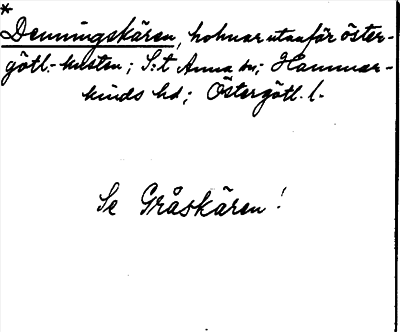 *
Denningskären, holmar utanför öster-
götl.-kusten; S:t Anna sn; Hammar-
kinds hd; Östergötl. l.
Se Gråskären!